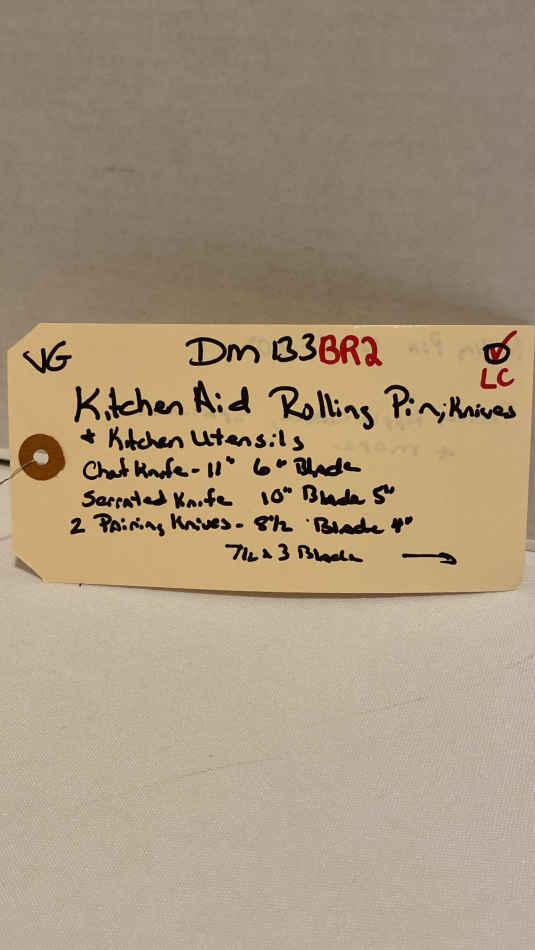 VG DM 133BR2
LC
Kitchen Aid Rolling Pin, Knives
+ Kitchen Utensils
Chef Knife - 11" 6" Blade
Serrated Knife 10" Blade 5"
2 Pairing Knives - 8 1/2 Blade 4"
7 1/2 x 3 Blade →